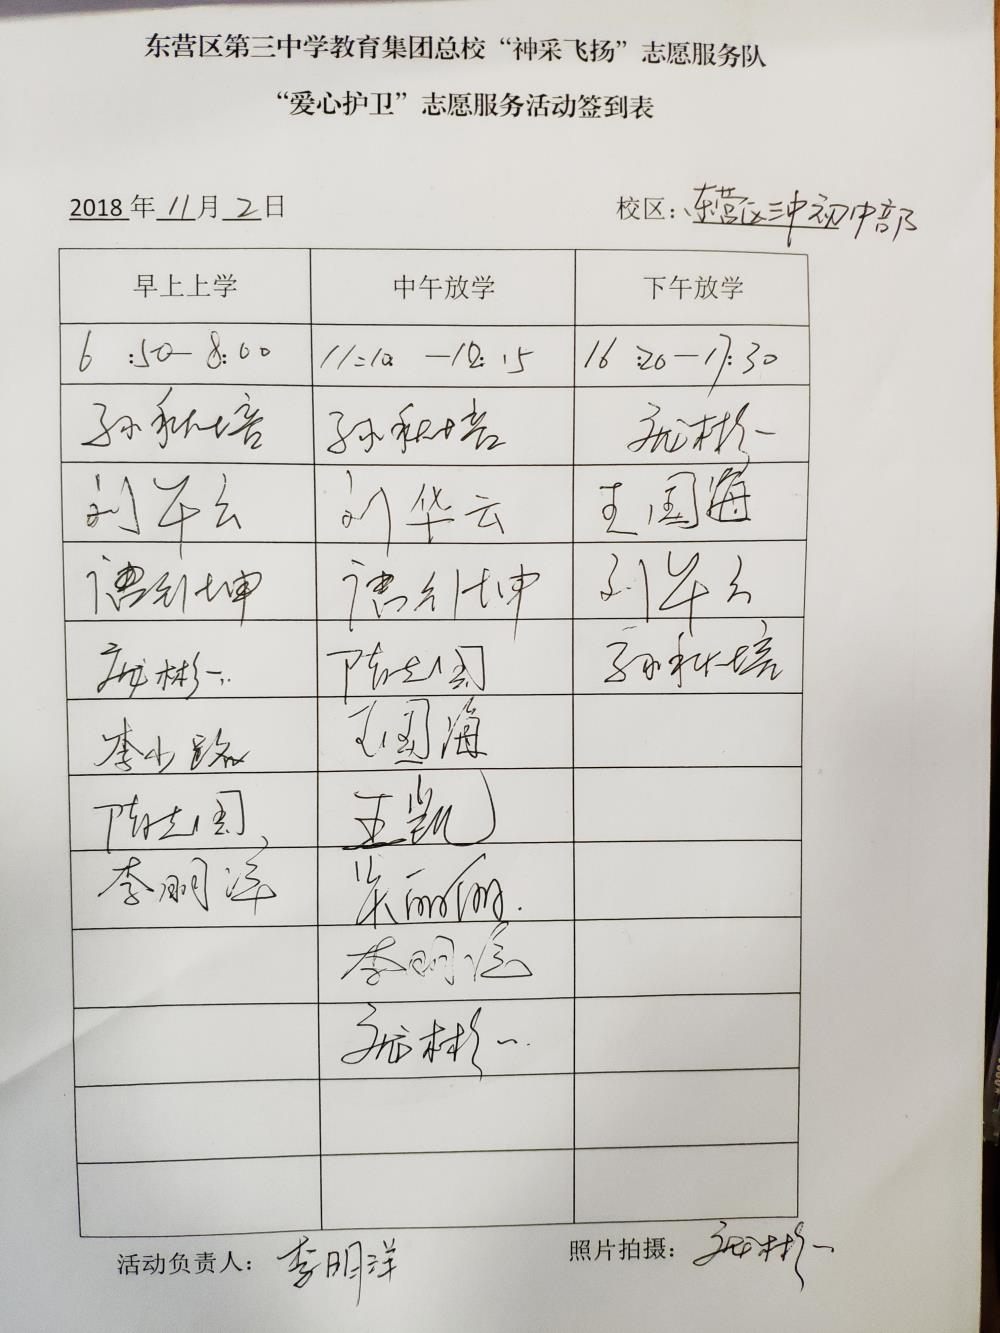 东营区第三中学教育集团总校“神采飞扬”志愿服务队
“爱心护卫”志愿服务活动签到表
2018 年 11 月 2 日 校区：东营区三中初中部
早上上学 中午放学 下午放学
6:50—8:00 11:10—12:15 16:20—17:30
孙秋培 孙秋培 彬一
刘华云 刘华云 王国海
刘华云
彬一 陈志国 孙秋培
李少铭 王国海
陈志国 王凯
李明洋 柴丽丽
李明洋
彬一
活动负责人：李明洋 照片拍摄：彬一